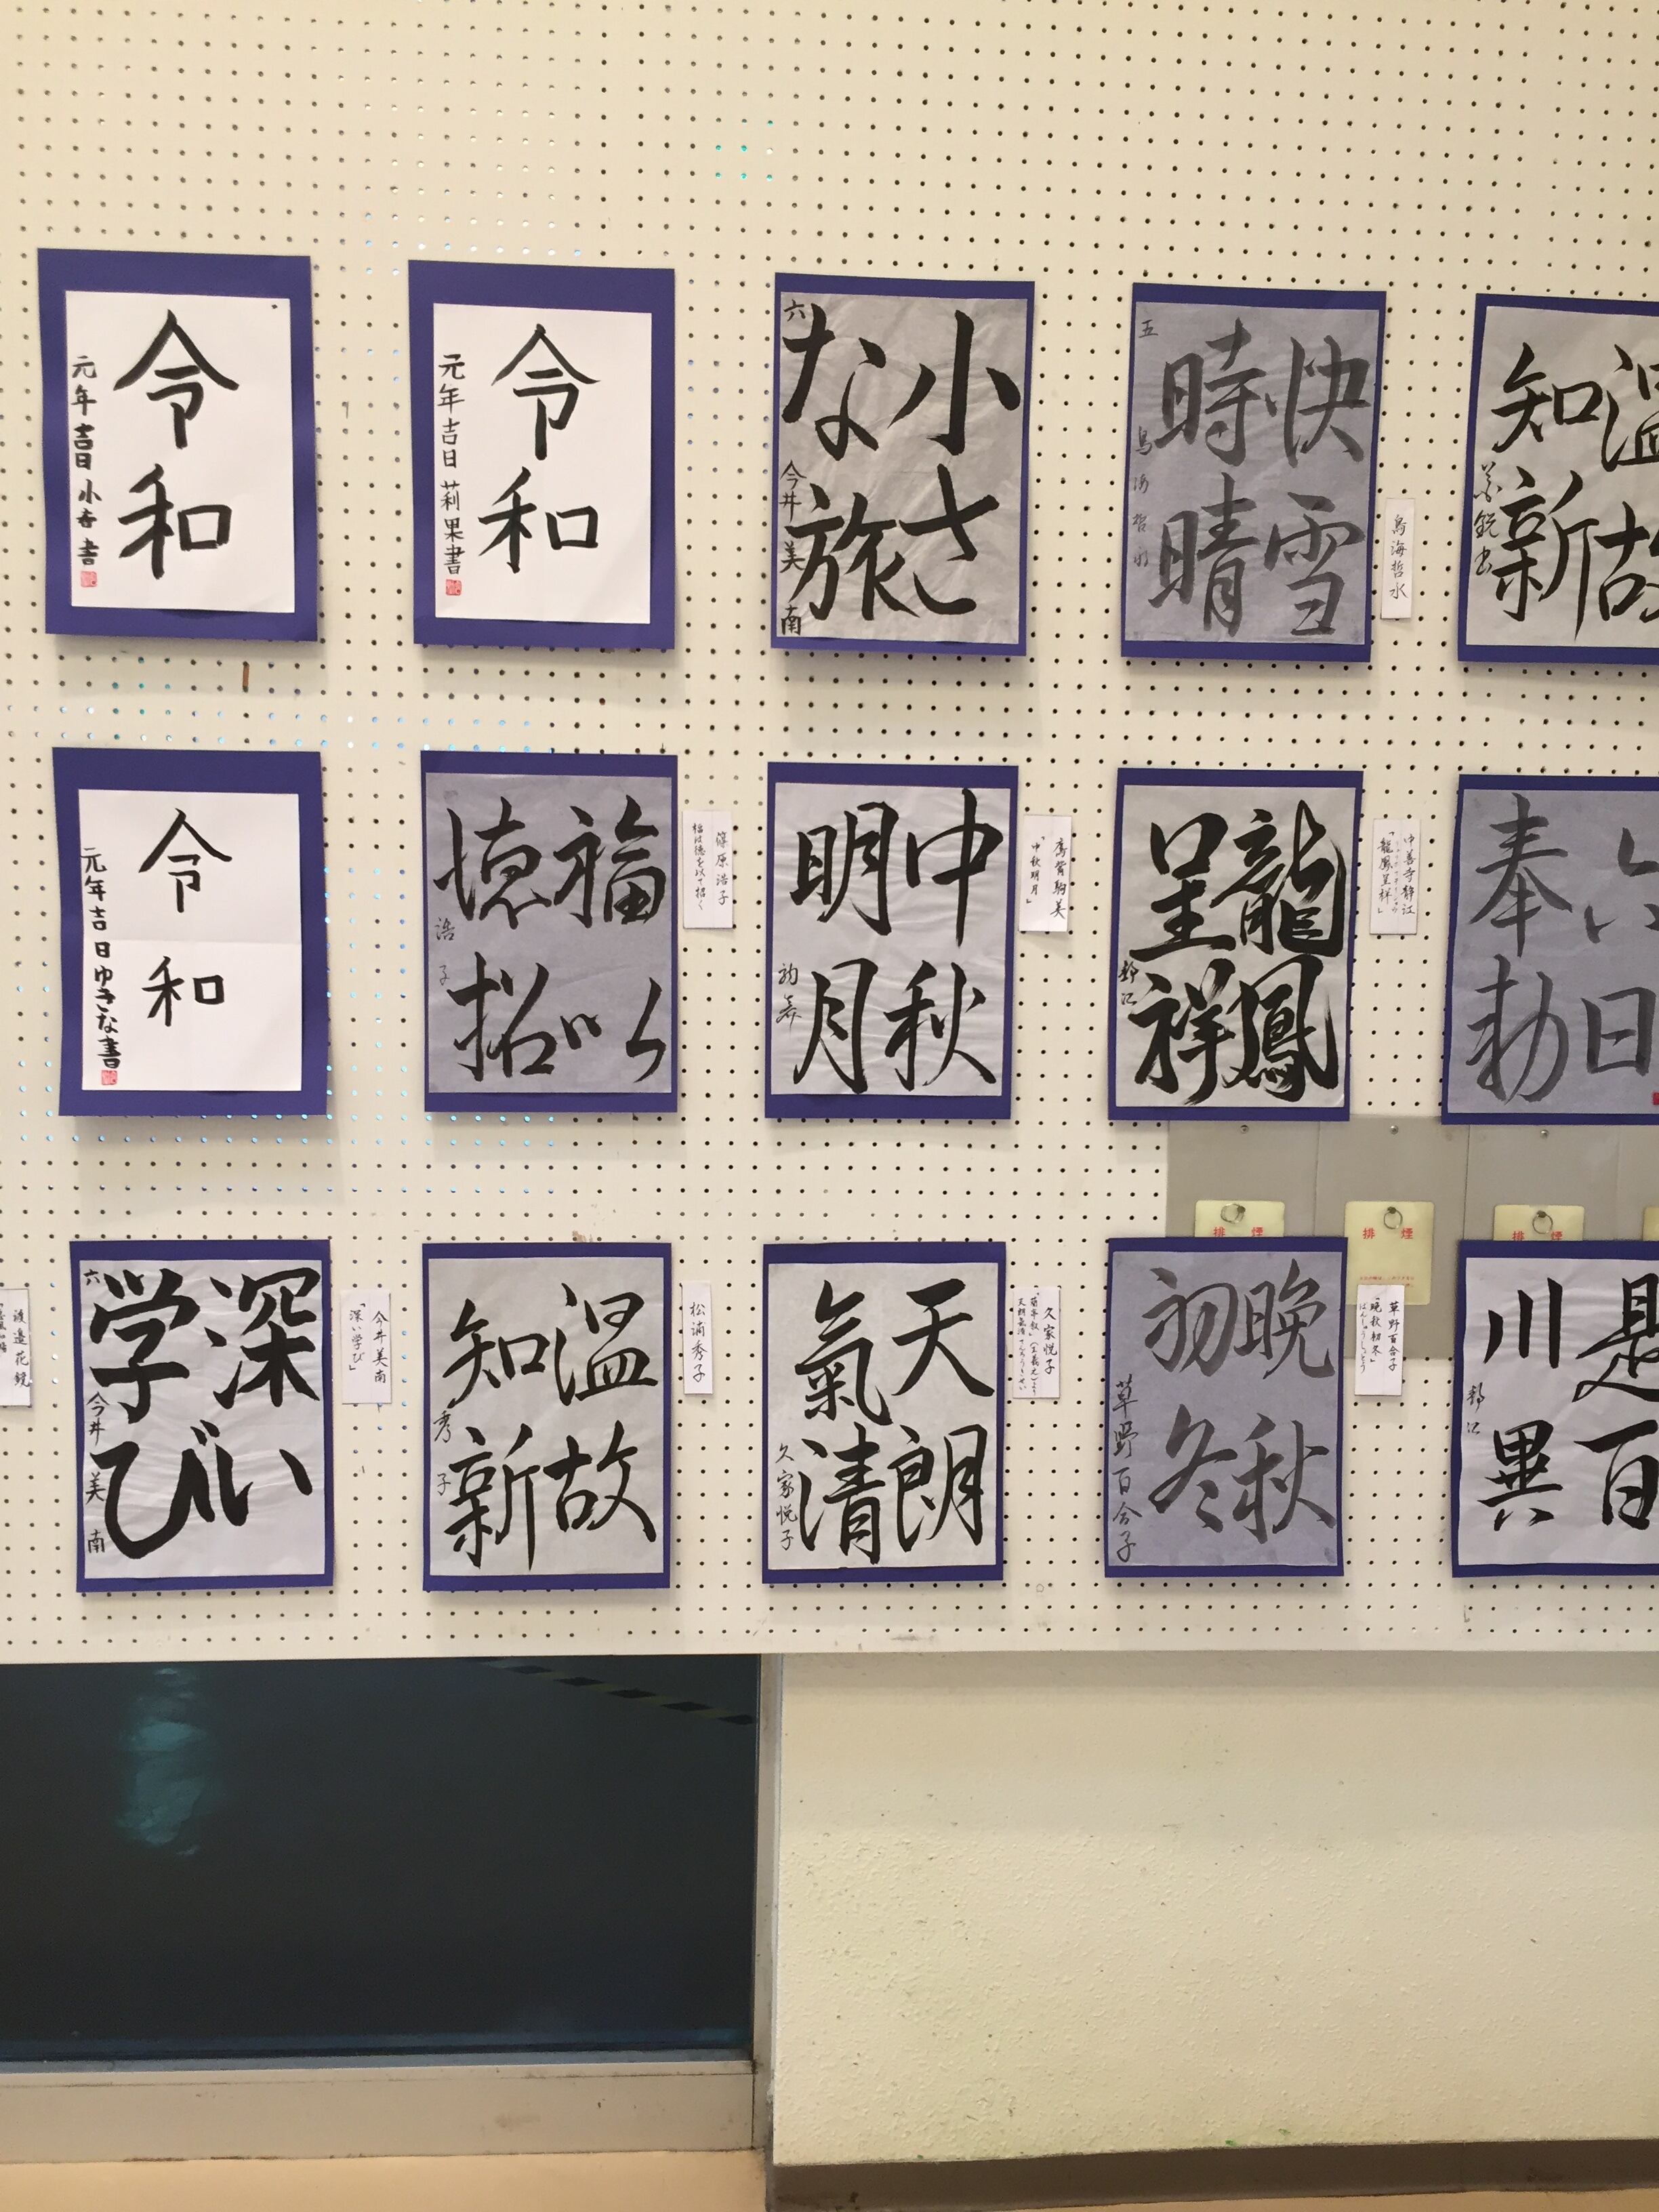 令和
元年吉日 小春書
令和
元年吉日 莉果書
小さ
な旅
六 今井美南
快雪
時晴
五 鳥海哲水
鳥海哲水
知新
令和
元年吉日ゆきな書
福以
徳招
浩子
篠原浩子
福は徳を以て招く
中秋
明月
「中秋明月」
龍鳳
呈祥
静江
中善寺静江
「龍鳳呈祥」
日
奉勅
渡邉花鏡
深い
学び
六 今井美南
今井美南
「深い学び」
温故
知新
秀子
松浦秀子
天朗
氣清
久家悦子
久家悦子
排煙
排煙
排煙
晩秋
初冬
草野百合子
草野百合子
「晩秋初冬」
ばんしゅうしょとう
是百
川異
静江